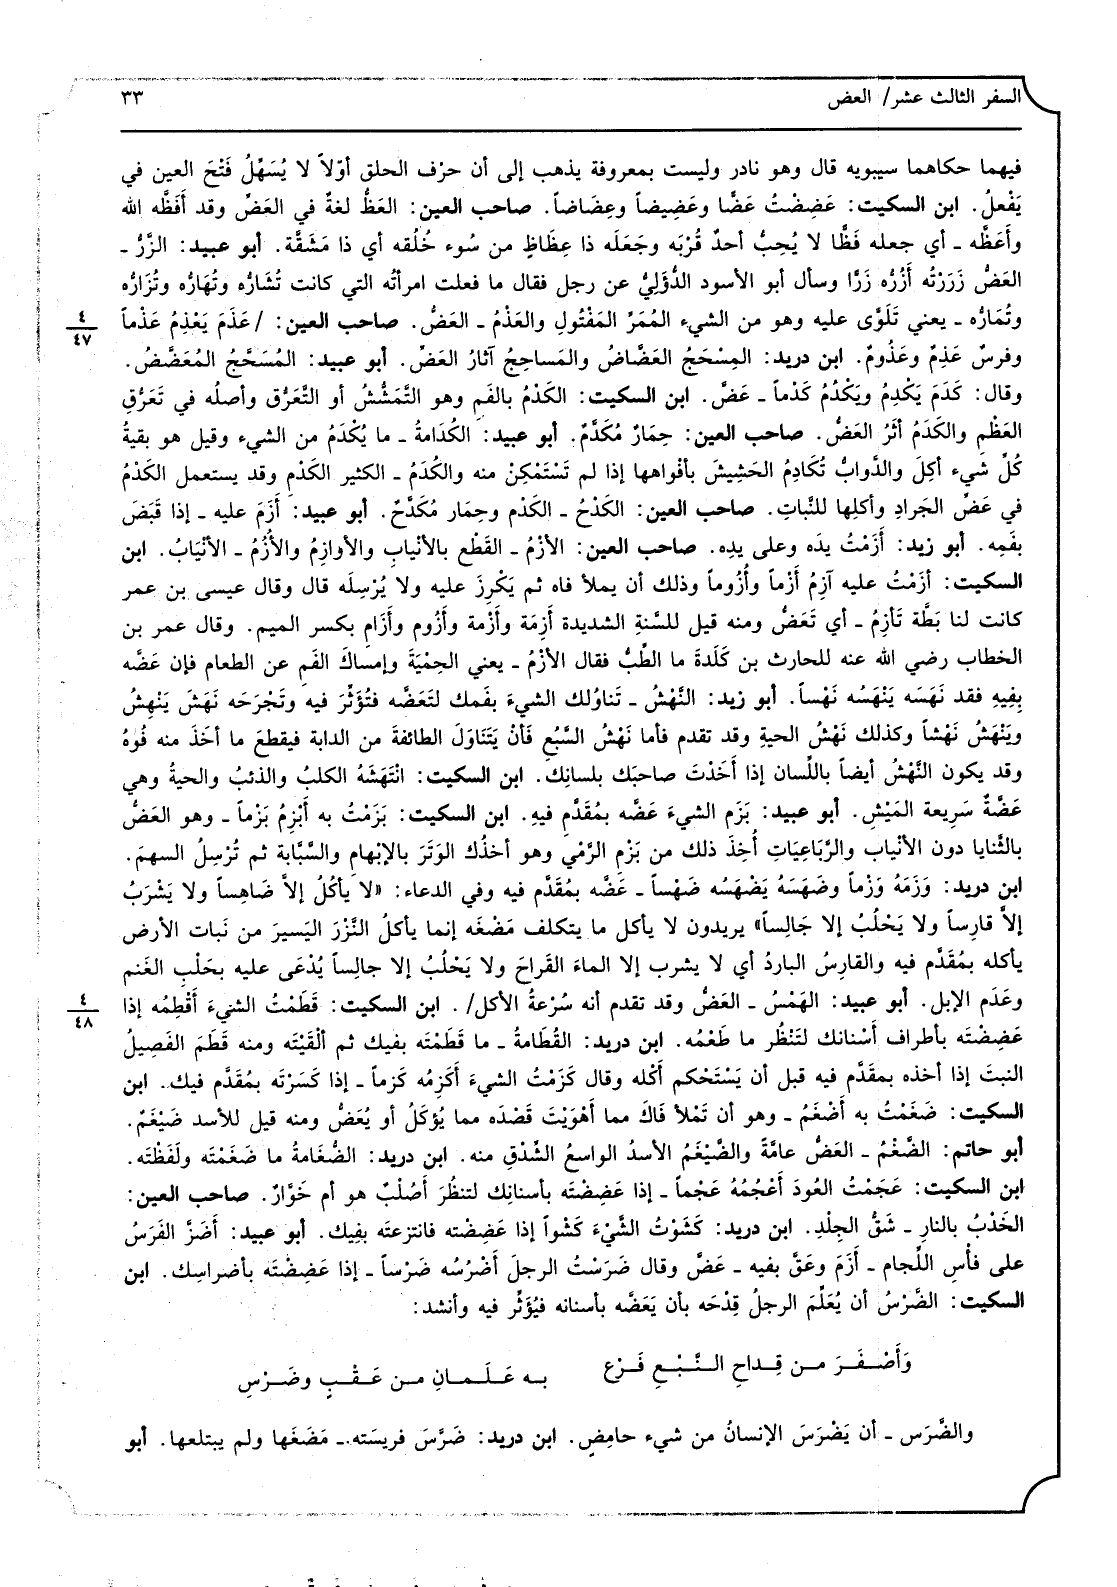 السفر الثالث عشر/ العض ٣٣
فيهما حكاهما سيبويه قال وهو نادر وليست بمعروفة يذهب إلى أن حرْف الحلق أوّلاً لا يُسَهِّلُ فَتْحَ العين في
يَفْعلُ. ابن السكيت: عَضِضْتُ عَضًّا وعَضِيضاً وعِضَاضاً. صاحب العين: العَظُّ لغةٌ في العَضِّ وقد أفَظَّه الله
وأعَظَّه ـ أي جعله فَظًّا لا يُحِبُّ أحدٌ قُرْبَه وجَعَلَه ذا عِظَاظٍ من سُوء خُلُقه أي ذا مَشَقَّة. أبو عبيد: الزَّرُّ ـ
العَضُّ زَرَرْتُه أَزُرُّه زَرًّا وسأل أبو الأسود الدُّؤَلِيُّ عن رجل فقال ما فعلت امرأتُه التي كانت تُشَارُّه وتُهَارُّه وتُزَارُّه
وتُمَارُّه ـ يعني تَلَوَّى عليه وهو من الشيء المُمَرِّ المَفْتُولِ والعَذْمُ ـ العَضُّ. صاحب العين: /عَذَمَ يَعْذِمُ عَذْماً
٤
٤٧
وفرسٌ عَذِمٌ وعَذُومٌ. ابن دريد: المِسْحَجُ العَضَّاضُ والمَساحِجُ آثارُ العَضِّ. أبو عبيد: المُسَحَّجُ المُعَضَّضُ.
وقال: كَدَمَ يَكْدِمُ ويَكْدُمُ كَدْماً ـ عَضَّ. ابن السكيت: الكَدْمُ بالفَمِ وهو التَّمَشُّشُ أو التَّعَرُّق وأصلُه في تَعَرُّقِ
العَظْمِ والكَدَمُ أثَرُ العَضِّ. صاحب العين: حِمَارٌ مُكَدَّمٌ. أبو عبيد: الكُدَامةُ ـ ما يُكْدَمُ من الشيء وقيل هو بقيةُ
كُلِّ شَيء أكِلَ والدَّوابُّ تُكَادِمُ الحَشِيشَ بأفْواهِها إذا لم تَسْتَمْكِنْ منه والكُدَمُ ـ الكثير الكَدْمِ وقد يستعمل الكَدْمُ
في عَضِّ الجَرادِ وأكلِها للنَّباتِ. صاحب العين: الكَدْحُ ـ الكَدْم وحِمَار مُكَدَّحٌ. أبو عبيد: أَزَمَ عليه ـ إذا قَبَضَ
بفَمِه. أبو زيد: أَزَمْتُ يدَه وعلى يدِه. صاحب العين: الأزْمُ ـ القَطْع بالأنْيابِ والأوازِمُ والأُزُمُ ـ الأنْيَابُ. ابن
السكيت: أزَمْتُ عليه آزِمُ أَزْماً وأُزُوماً وذلك أن يملأ فاه ثم يَكْرِزَ عليه ولا يُرْسِلَه قال وقال عيسى بن عمر
كانت لنا بَطَّة تَأزِمُ ـ أي تَعَضُّ ومنه قيل للسَّنةِ الشديدة أَزِمَة وأزْمة وأزُوم وأزَامِ بكسر الميم. وقال عمر بن
الخطاب رضي الله عنه للحارث بن كَلَدةَ ما الطِّبُّ فقال الأزْمُ ـ يعني الحِمْيَةَ وإمساكَ الفَمِ عن الطعام فإن عَضَّه
بِفِيهِ فقد نَهَسَه يَنْهَسُه نَهْساً. أبو زيد: النَّهْشُ ـ تَناوُلك الشيءَ بفَمك لتَعَضَّه فتُؤَثِّرَ فيه وتَجْرَحَه نَهَشَ يَنْهِشُ
ويَنْهَشُ نَهْشاً وكذلك نَهْشُ الحيةِ وقد تقدم فأما نَهْشُ السَّبُعِ فَأنْ يَتَنَاوَلَ الطائفةَ من الدابة فيقطعَ ما أخَذَ منه فُوهُ
وقد يكون النَّهْشُ أيضاً باللِّسان إذا أَخَذْتَ صاحبَك بلسانِك. ابن السكيت: انْتَهَشَهُ الكلبُ والذئبُ والحيةُ وهي
عَضَّةٌ سَرِيعة المَيْشِ. أبو عبيد: بَزَم الشيءَ عَضَّه بمُقَدَّمِ فيهِ. ابن السكيت: بَزَمْتُ به أَبْزِمُ بَزْماً ـ وهو العَضُّ
بالثَّنايا دون الأنْياب والرَّباعِيَاتِ أُخِذَ ذلك من بَزْمِ الرَّمْي وهو أخذُك الوَتَرَ بالإبْهامِ والسَّبَّابة ثم تُرْسِلُ السهمَ.
ابن دريد: وَزَمَهُ وَزْماً وضَهَسَهُ يَضْهَسُه ضَهْساً ـ عَضَّه بمُقَدَّم فيه وفي الدعاء: «لا يأكُلُ إلاَّ ضَاهِساً ولا يَشْرَبُ
إلاَّ قارِساً ولا يَحْلُبُ إلا جَالِساً» يريدون لا يأكل ما يتكلف مَضْغَه إنما يأكلُ النَّزْرَ اليَسيرَ من نَبات الأرض
يأكله بمُقَدَّم فيه والقارِسُ الباردُ أي لا يشرب إلا الماءَ القَراحَ ولا يَحْلُبُ إلا جالساً يُدْعَى عليه بحَلْبِ الغَنم
وعَدَم الإبل. أبو عبيد: الهَمْسُ ـ العَضُّ وقد تقدم أنه سُرْعةُ الأكل/. ابن السكيت: قَطَمْتُ الشيءَ أَقْطِمُه إذا
٤
٤٨
عَضِضْتَه بأطراف أسْنانك لتَنْظُر ما طَعْمُه. ابن دريد: القُطَامةُ ـ ما قَطَمْتَه بفيك ثم ألْقَيْتَه ومنه قَطَمَ الفَصِيلُ
النبتَ إذا أخذه بمقدَّم فيه قبل أن يَسْتَحْكم أكْله وقال كَزَمْتُ الشيءَ أَكزِمُه كَزماً ـ إذا كَسَرْتَه بمُقَدَّم فيك. ابن
السكيت: ضَغَمْتُ به أَضْغَمُ ـ وهو أن تَمْلأ فَاكَ مما أهْوَيْتَ قَصْدَه مما يُؤكَلُ أو يُعَضُّ ومنه قيل للأسد ضَيْغَمٌ.
أبو حاتم: الضَّغْمُ ـ العَضُّ عامَّةً والضَّيْغَمُ الأسدُ الواسعُ الشِّدْقِ منه. ابن دريد: الضُّغَامةُ ما ضَغَمْتَه ولَفَظْتَه.
ابن السكيت: عَجَمْتُ العُودَ أَعْجُمُهُ عَجْماً ـ إذا عَضِضْتَه بأسنانِك لتنظُرَ أَصُلْبٌ هو أم خَوَّارٌ. صاحب العين:
الخَدْبُ بالنارِ ـ شَقُّ الجِلْدِ. ابن دريد: كَشَوْتُ الشَّيْءَ كَشْواً إذا عَضِضْته فانتزعتَه بفِيك. أبو عبيد: أضَزَّ الفَرَسُ
على فأْسِ اللِّجام ـ أَزَمَ وعَقَّ بفيه ـ عَضَّ وقال ضَرَسْتُ الرجلَ أَضْرُسُه ضَرْساً ـ إذا عَضِضْتَه بأضراسِك. ابن
السكيت: الضَّرْسُ أن يُعَلِّمَ الرجلُ قِدْحَه بأن يَعَضَّه بأسنانه فيُؤَثِّر فيه وأنشد:
وَأَصْـفَـرَ مـن قِـداحِ الـنَّـبْـعِ فَـرْع بـه عَـلَـمـانِ مـن عَـقْـبٍ وضَـرْسِ
والضَّرَس ـ أن يَضْرَسَ الإنسانُ من شيء حامِضٍ. ابن دريد: ضَرَّسَ فريسَته ـ مَضَغَها ولم يبتلعها. أبو